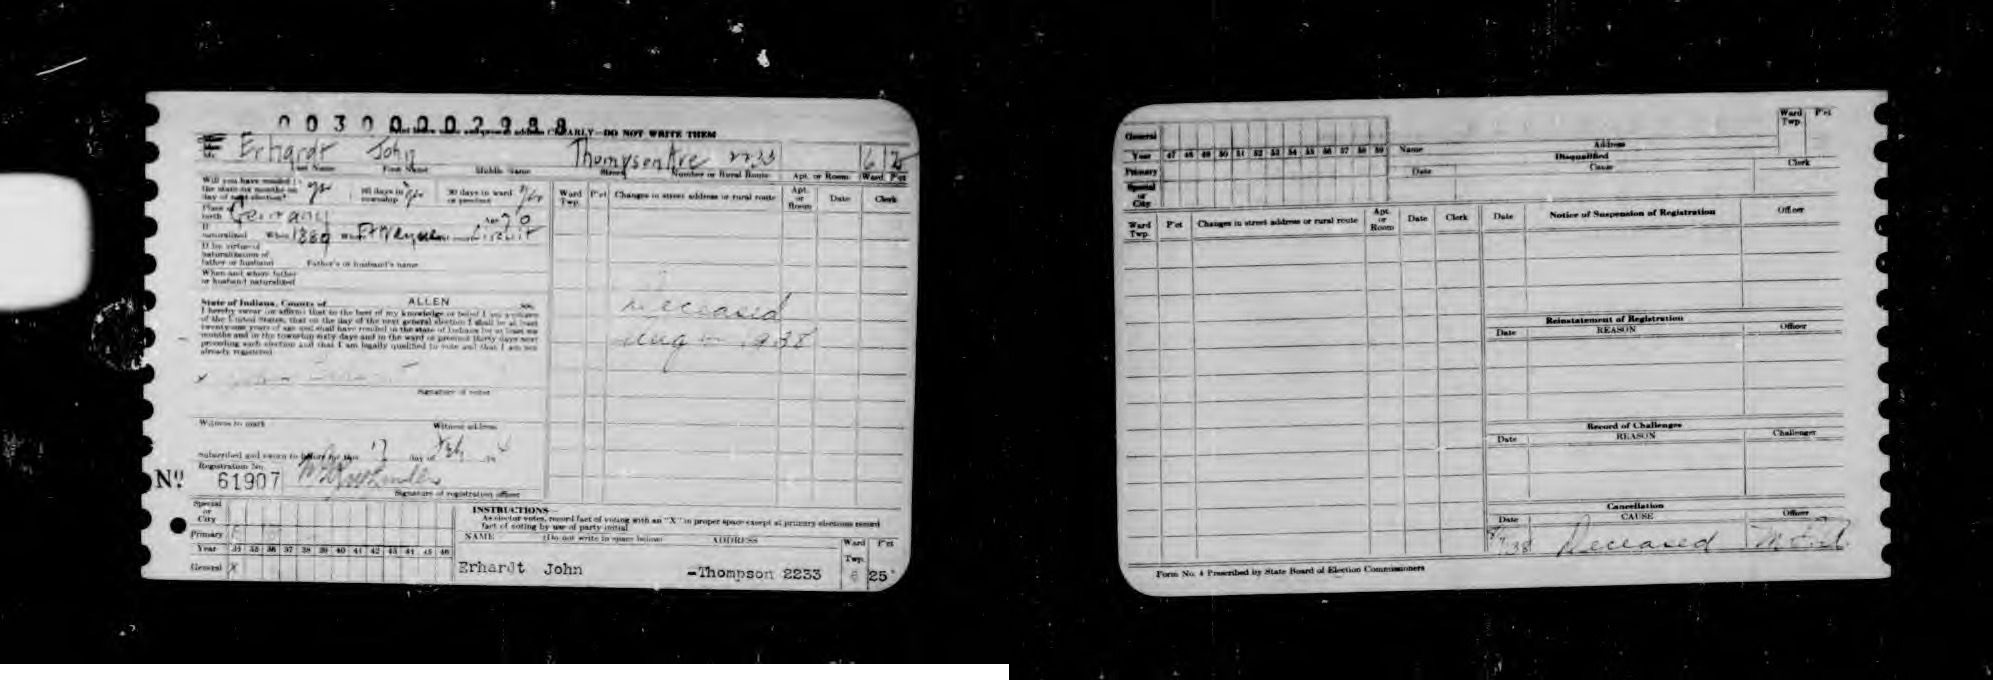 00300002988
CLEARLY—DO NOT WRITE THEM
Erhardt John Thompson Ave 2233 6 25
Last Name First Name Middle Name Street Number or Rural Route Apt. or Room Ward P'ct
Will you have resided in
the state six months on
day of next election? yes 60 days in township yes 30 days in ward or precinct yes
Place of birth Germany Age 70
If naturalized When 1880 Where Ft Wayne Court Circuit
If by virtue of
naturalization of
father or husband Father's or husband's name
When and where father
or husband naturalized
State of Indiana, County of ALLEN ss.
I hereby swear (or affirm) that to the best of my knowledge or belief I am a citizen
of the United States, that on the day of the next general election I shall be at least
twenty-one years of age and shall have resided in the state of Indiana for at least six
months and in the township sixty days and in the ward or precinct thirty days next
preceding such election and that I am legally qualified to vote and that I am not
already registered.
x
Signature of voter
Witness to mark Witness address
Subscribed and sworn to before me this 17 day of Feb 19
Registration No.
No. 61907
Signature of registration officer
Ward Twp. P'ct Changes in street address or rural route Apt. or Room Date Clerk
Deceased
Aug 1938
Special or City
Primary
Year 34 35 36 37 38 39 40 41 42 43 44 45 46
General X
INSTRUCTIONS
As elector votes, record fact of voting with an "X" in proper space except at primary elections record
fact of voting by use of party initial
NAME (Do not write in space below) ADDRESS Ward Twp. P'ct
Erhardt John -Thompson 2233 6 25
General
Year 47 48 49 50 51 52 53 54 55 56 57 58 59
Primary
Special or City
Name Address Ward Twp. P'ct
Disqualified
Date Cause Clerk
Ward Twp. P'ct Changes in street address or rural route Apt. or Room Date Clerk
Date Notice of Suspension of Registration Officer
Reinstatement of Registration
Date REASON Officer
Record of Challenges
Date REASON Challenger
Cancellation
Date CAUSE Officer
Deceased
Form No. 4 Prescribed by State Board of Election Commissioners